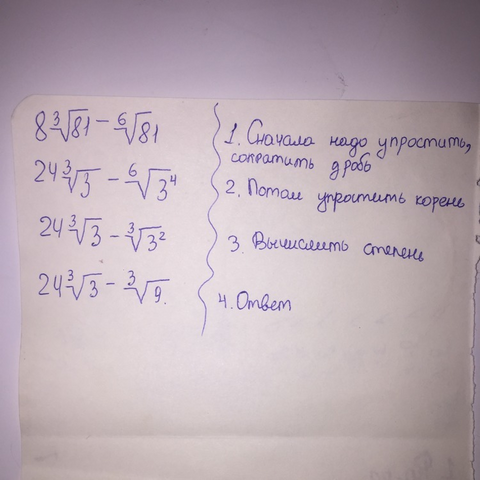 8∛81 − ⁶√81
24∛3 − ⁶√3⁴
24∛3 − ∛3²
24∛3 − ∛9.
1. Сначала надо упростить,
сократить дробь
2. Потом упростить корень
3. Вычислить степень
4. Ответ